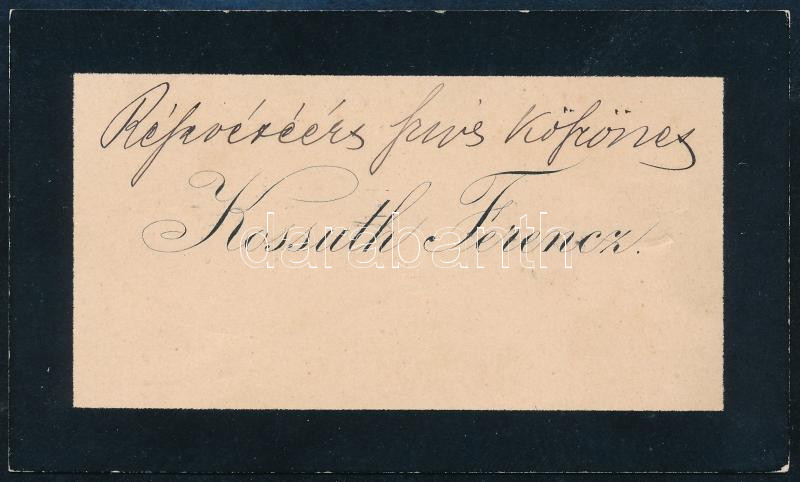 Részvétéért szives köszönet
Kossuth Ferencz.
darabanth